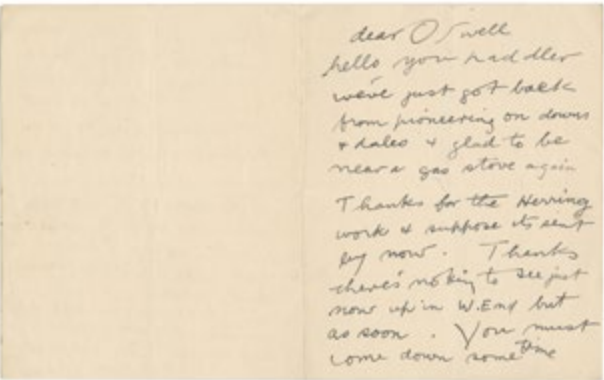 dear Oswell
hello you paddler
we've just got back
from pioneering on downs
& dales & glad to be
near a gas stove again
Thanks for the Herring
work & suppose its sent
by now. Thanks
there's nothing to see just
now up in W.End but
as soon. You must
come down some time